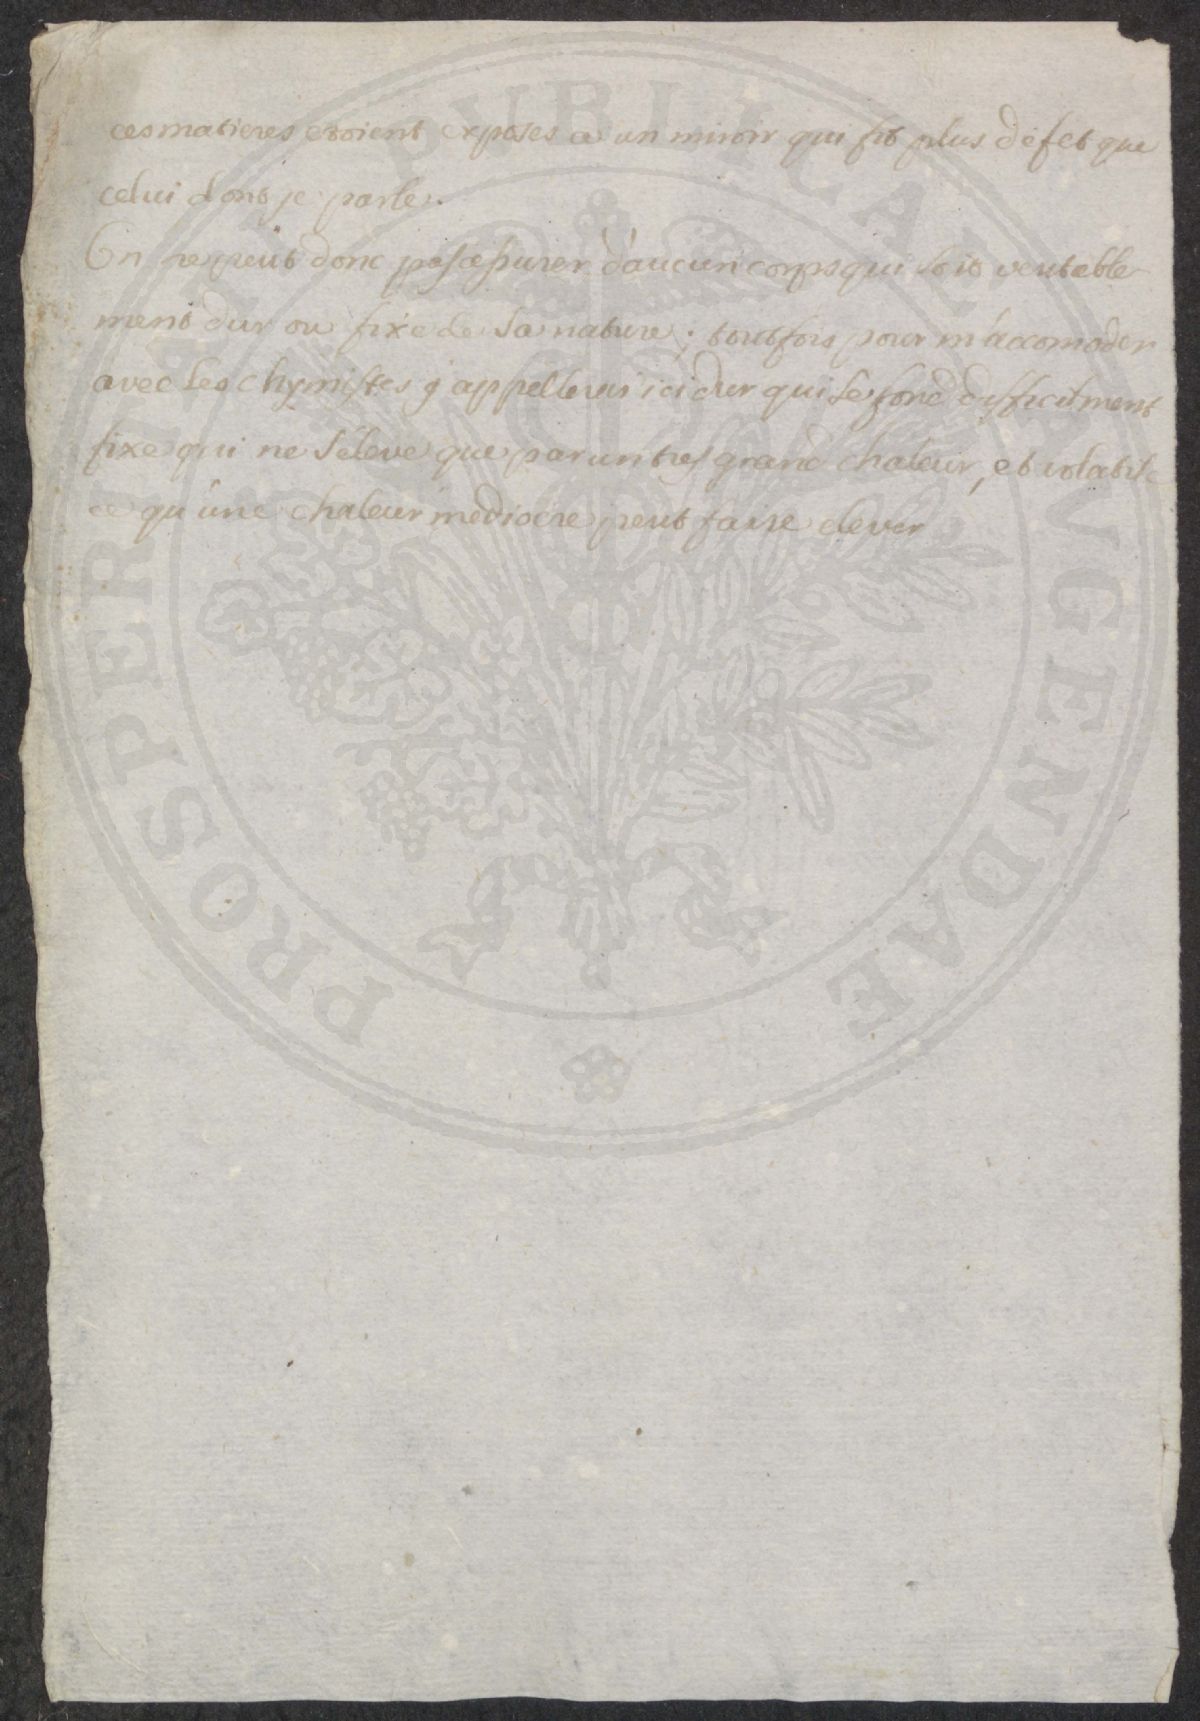 ces matieres etoient exposés a un miroir qui fit plus d'éfet que
celui dont je parle.
On ne peut donc pas assurer d'aucun corps qui soit veritable
ment dur ou fixe de sa nature; toutfois pour m'accomoder
avec les chymistes j'appellerai ici dur qui se fond difficilment
fixe qui ne s'éleve que par un tres grand chaleur, et volatile
ce qu'une chaleur mediocre peut faire elever
PROSPERITATI PUBLICAE AUGENDAE